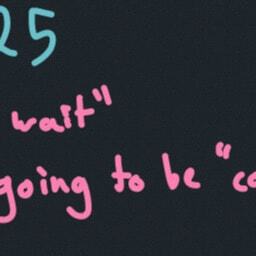 25
wait"
going to be "co